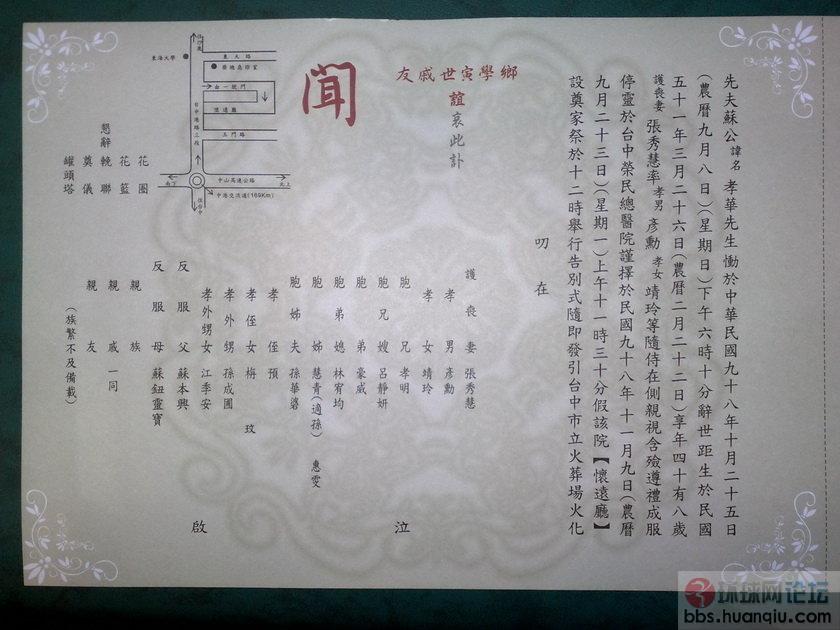 先夫蘇公諱名孝華先生慟於中華民國九十八年十月二十五日
（農曆九月八日）（星期日）下午六時十分辭世距生於民國
五十一年三月二十六日（農曆二月二十二日）享年四十有八歲
護喪妻張秀慧率孝男彥勳孝女靖玲等隨侍在側親視含殮遵禮成服
停靈於台中榮民總醫院謹擇於民國九十八年十一月九日（農曆
九月二十三日）（星期一）上午十一時三十分假該院【懷遠廳】
設奠家祭於十二時舉行告別式隨即發引台中市立火葬場火化
叨在
鄉學寅世戚友
誼哀此訃
聞
護喪妻 張秀慧
孝男 彥勳
孝女 靖玲
胞兄 孝明
胞兄嫂 呂靜妍
胞弟 豪威
胞弟媳 林宥均
胞姊 慧青（適孫） 惠雯
胞姊夫 孫華
孝侄 預
孝侄女 梅 玟
孝外甥 孫成圃
孝外甥女 江季安
反服父 蘇本興
反服母 蘇鈕靈寶
親族
親戚 一同
親友
（族繁不及備載）
泣
啟
懇辭
花圈
花籃
輓聯
奠儀
罐頭塔
東海大學
東大路
台中港路三段
玉門路
中山高速公路
南下
北上
中港交流道(169Km)
往台中
环球网论坛
bbs.huanqiu.com